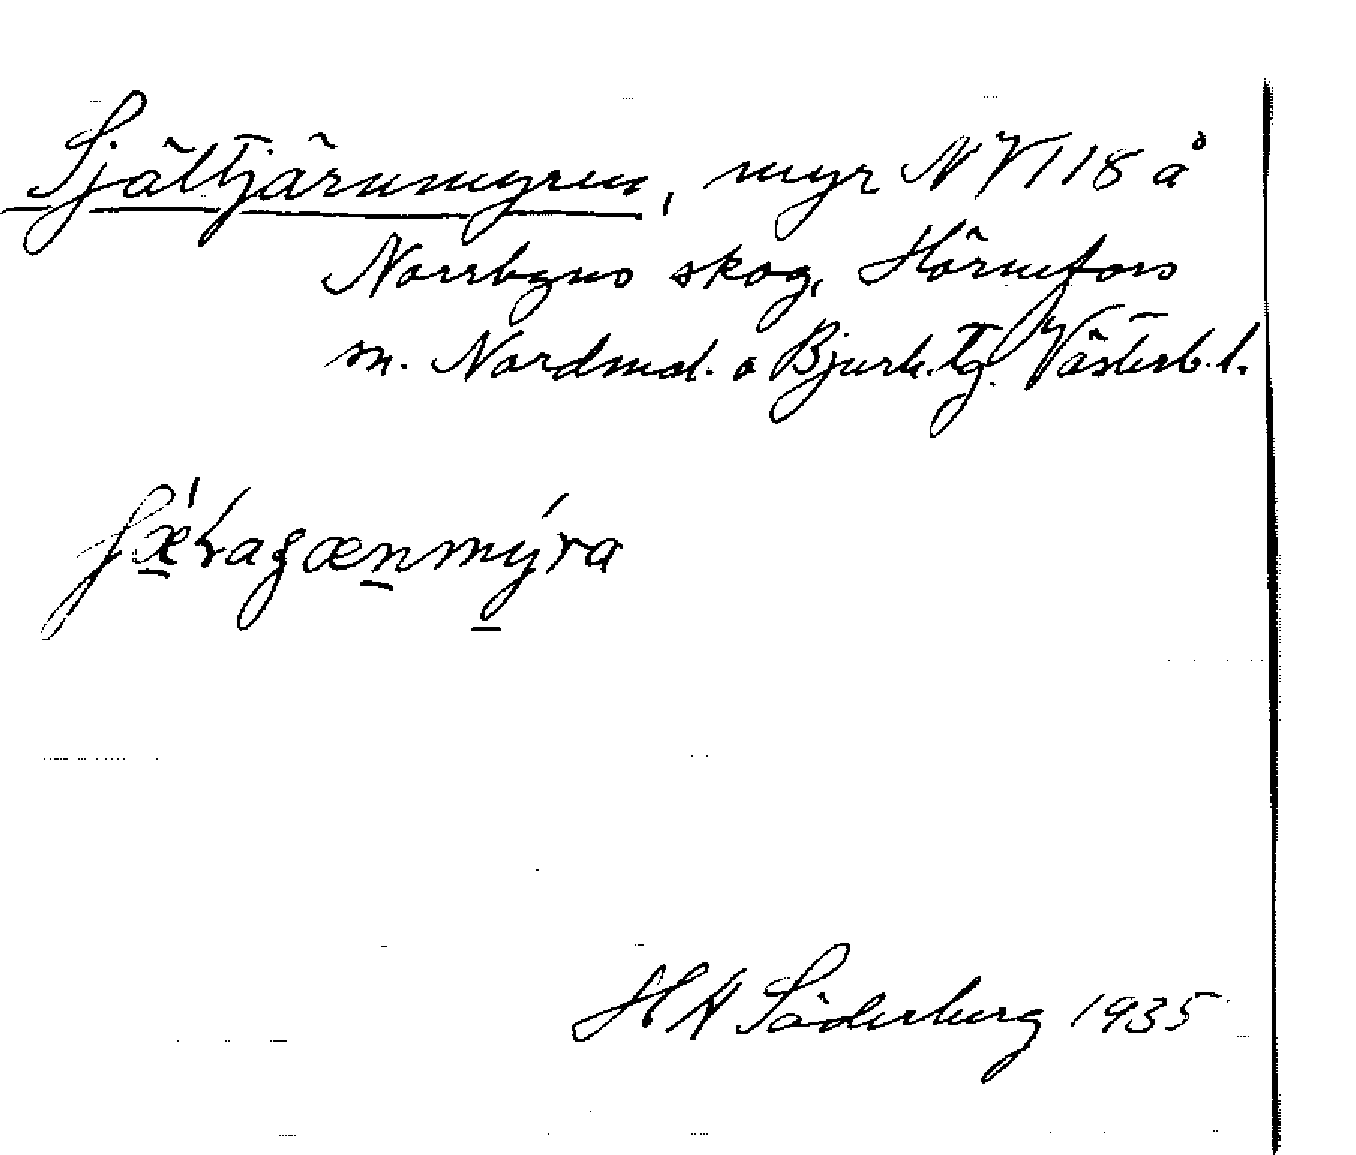 Själtjärnmyren, myr N VI 18 å
Norrbyns skog, Hörnefors
m. Nordmal. o Bjurh. tg. Västerb. l.
H H Söderberg 1935